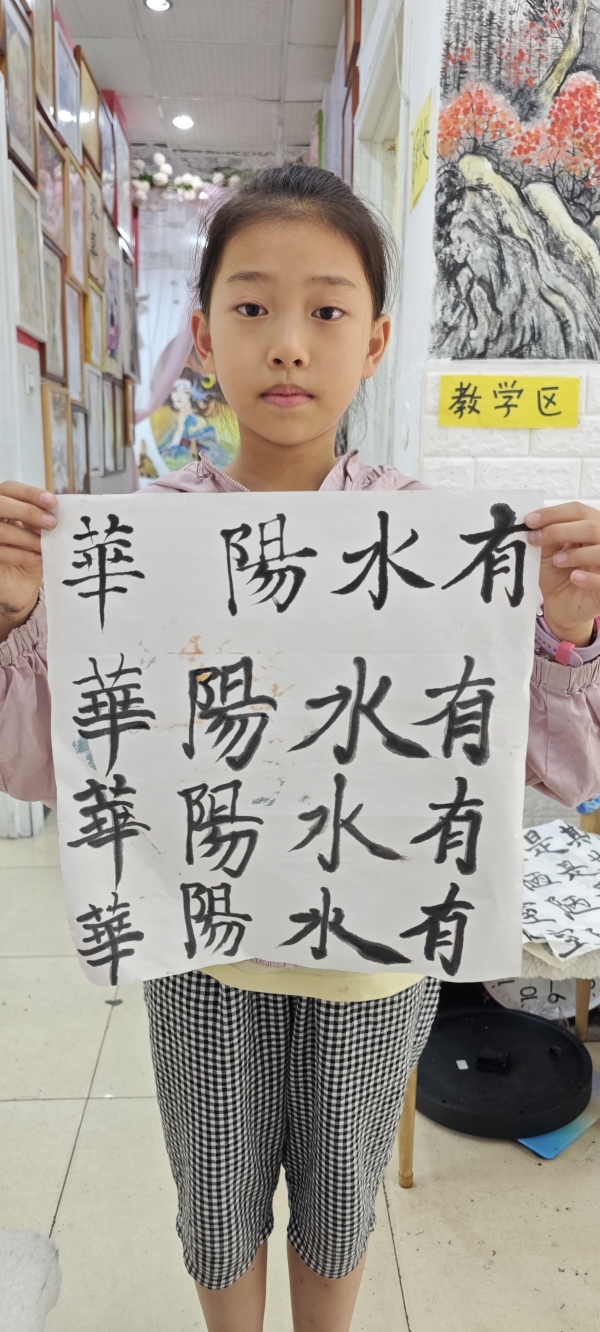 教学区
華陽水有
華陽水有
華陽水有
華陽水有